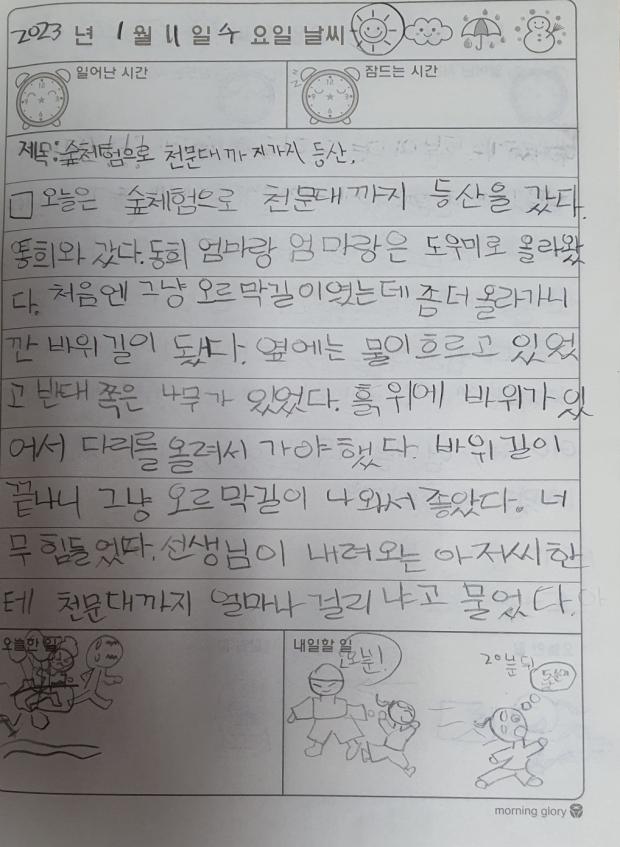 2023 년 1 월 11 일 수 요일 날씨
일어난 시간
잠드는 시간
제목: 숲체험으로 천문대까지가지 등산.
오늘은 숲체험으로 천문대까지 등산을 갔다.
동희와 갔다. 동희 엄마랑 엄마랑은 도우미로 올라왔
다. 처음엔 그냥 오르막길이였는데 좀 더 올라가니
깐 바위길이 됐다. 옆에는 물이 흐르고 있었
고 반대 쪽은 나무가 있었다. 흙 위에 바위가 있
어서 다리를 올려서 가야 했다. 바위길이
끝나니 그냥 오르막길이 나와서 좋았다. 너
무 힘들었다. 선생님이 내려오는 아저씨한
테 천문대까지 얼마나 걸리냐고 물었다.
오늘한 일
내일할 일
오분!
20분 뒤
morning glory